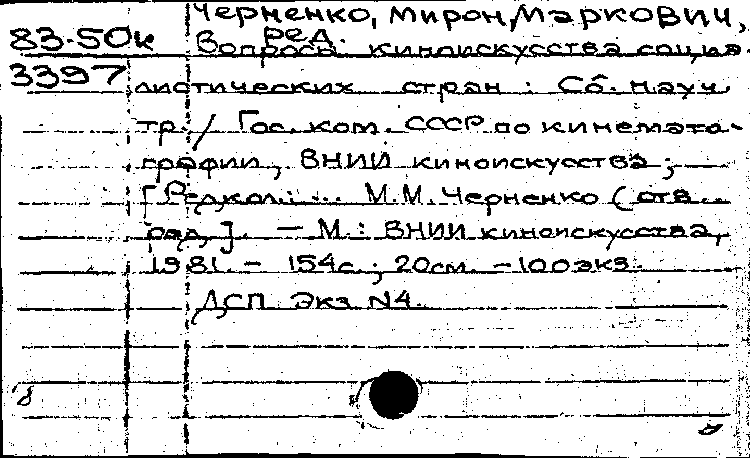 Черненко, Мирон Маркович,
ред.
83-50к Вопросы киноискусства социа-
3397 листических стран : Сб. науч.
тр. / Гос. ком. СССР по кинемато-
графии, ВНИИ киноискусства ;
[Редкол.: ... М.М. Черненко (отв.
ред.]. — М. : ВНИИ киноискусства,
1981. – 154с. ; 20см. – 100экз.
ДСП Экз N4.